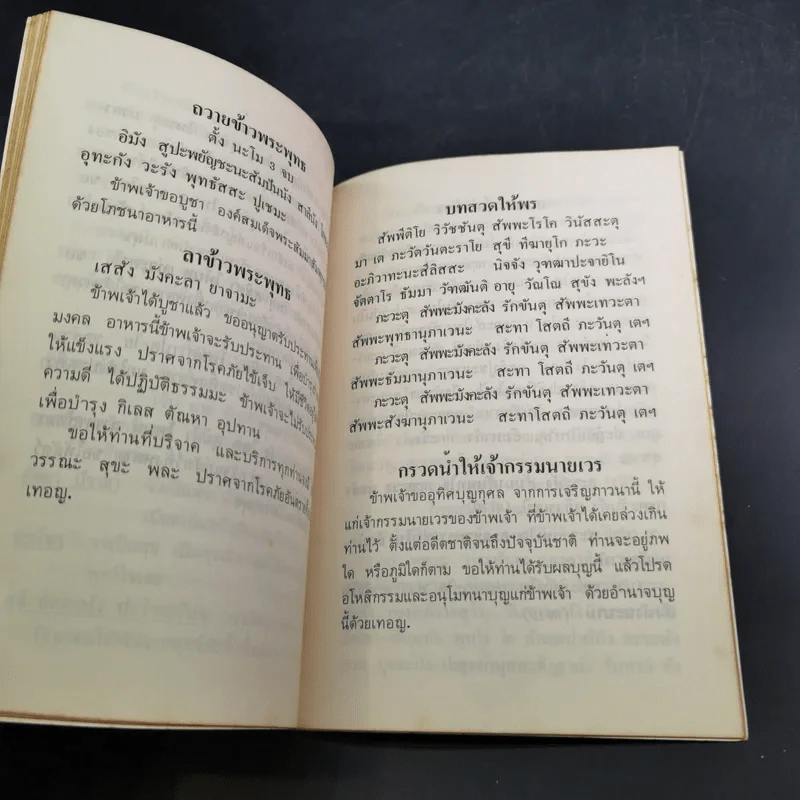 ถวายข้าวพระพุทธ
ตั้ง นะโม 3 จบ
อิมัง สูปะพยัญชะนะสัมปันนัง สาลีนัง
อุทะกัง วะรัง พุทธัสสะ ปูเชมะ
ข้าพเจ้าขอบูชา องค์สมเด็จพระสัมมา
ด้วยโภชนาอาหารนี้
ลาข้าวพระพุทธ
เสสัง มังคะลา ยาจามะ
ข้าพเจ้าได้บูชาแล้ว ขออนุญาตรับประทาน
มงคล อาหารนี้ข้าพเจ้าจะรับประทาน เพื่อบำรุง
ให้แข็งแรง ปราศจากโรคภัยไข้เจ็บ ให้มีชีวิต
ความดี ได้ปฏิบัติธรรมมะ ข้าพเจ้าจะไม่รับ
เพื่อบำรุง กิเลส ตัณหา อุปทาน
ขอให้ท่านที่บริจาค และบริการทุกท่านจงมี
วรรณะ สุขะ พละ ปราศจากโรคภัยอันตราย
เทอญ.
บทสวดให้พร
สัพพีติโย วิวัชชันตุ สัพพะโรโค วินัสสะตุ
มา เต ภะวัตวันตะราโย สุขี ทีฆายุโก ภะวะ
อะภิวาทะนะสีลิสสะ นิจจัง วุฑฒาปะจายิโน
จัตตาโร ธัมมา วัฑฒันติ อายุ วัณโณ สุขัง พะลังฯ
ภะวะตุ สัพพะมังคะลัง รักขันตุ สัพพะเทวะตา
สัพพะพุทธานุภาเวนะ สะทา โสตถี ภะวันตุ เตฯ
ภะวะตุ สัพพะมังคะลัง รักขันตุ สัพพะเทวะตา
สัพพะธัมมานุภาเวนะ สะทา โสตถี ภะวันตุ เตฯ
ภะวะตุ สัพพะมังคะลัง รักขันตุ สัพพะเทวะตา
สัพพะสังฆานุภาเวนะ สะทาโสตถี ภะวันตุ เตฯ
กรวดน้ำให้เจ้ากรรมนายเวร
ข้าพเจ้าขออุทิศบุญกุศล จากการเจริญภาวนานี้ ให้
แก่เจ้ากรรมนายเวรของข้าพเจ้า ที่ข้าพเจ้าได้เคยล่วงเกิน
ท่านไว้ ตั้งแต่อดีตชาติจนถึงปัจจุบันชาติ ท่านจะอยู่ภพ
ใด หรือภูมิใดก็ตาม ขอให้ท่านได้รับผลบุญนี้ แล้วโปรด
อโหสิกรรมและอนุโมทนาบุญแก่ข้าพเจ้า ด้วยอำนาจบุญ
นี้ด้วยเทอญ.